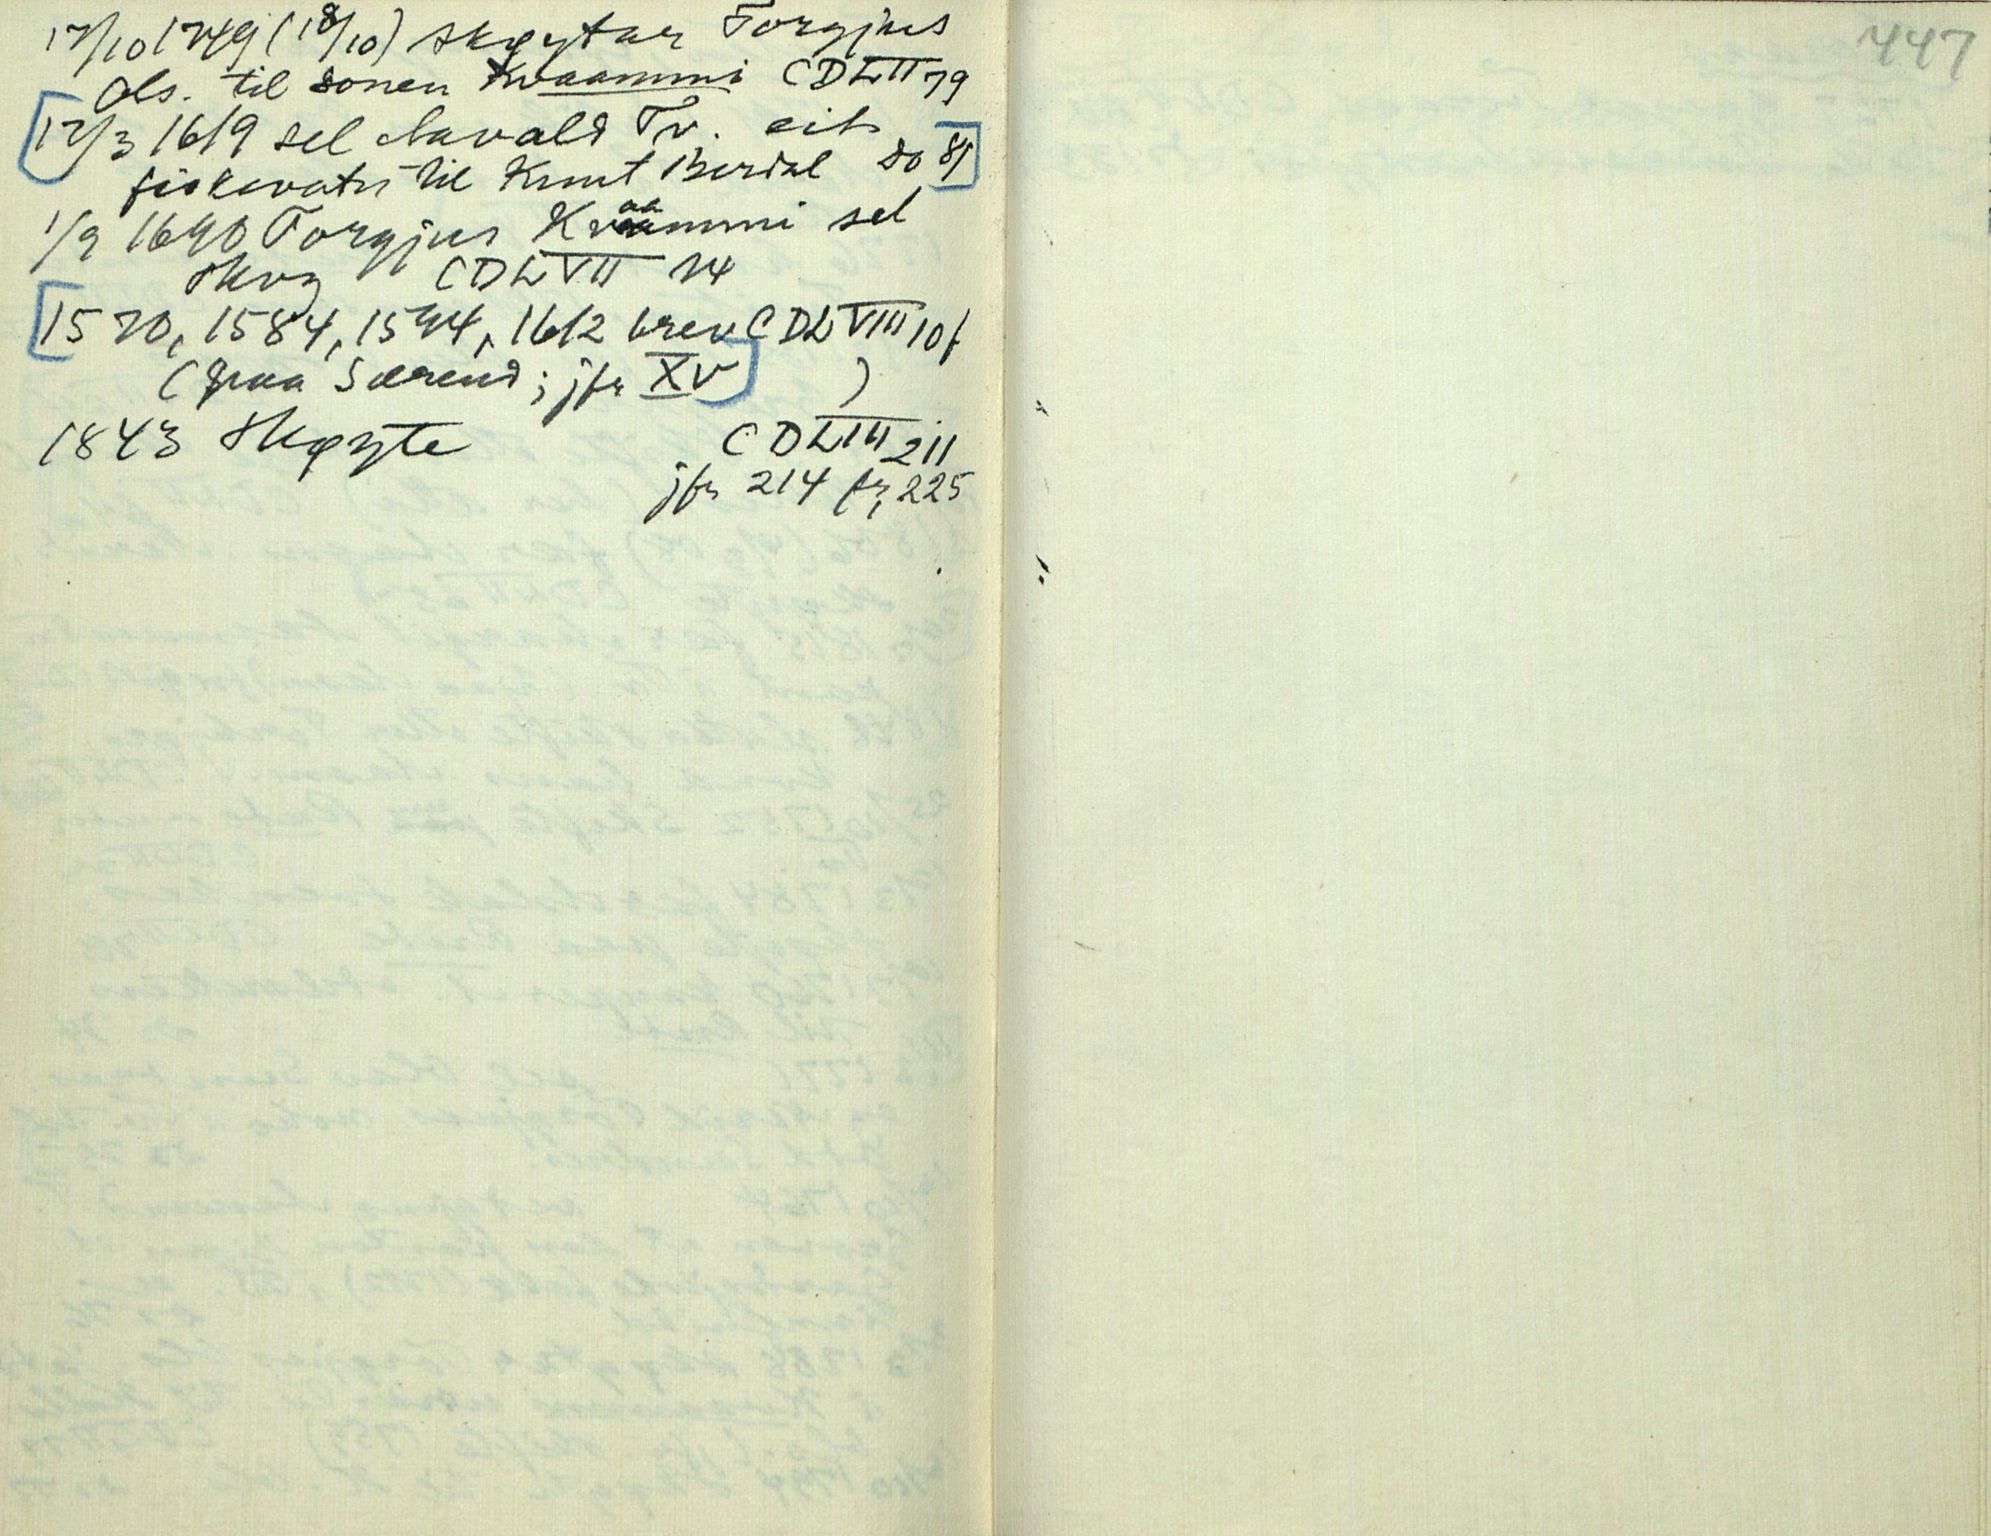 17/10 1749 (18/10) skøytar Torgjus
Ols. til sonen Kvaammi CDLII 79
[12/3 1619 sel Aavald Tv. eit
fiskevatn til Knut Berdal do 81]
1/9 1690 Torgjus Kvaammi sel
skog CDLVII 14
[1570, 1584, 1594, 1612 brev CDLVIII 10f
(paa Særend; jfr XV] )
1843 Skøyte CDLIII 211
jfr 214 fr, 225
447